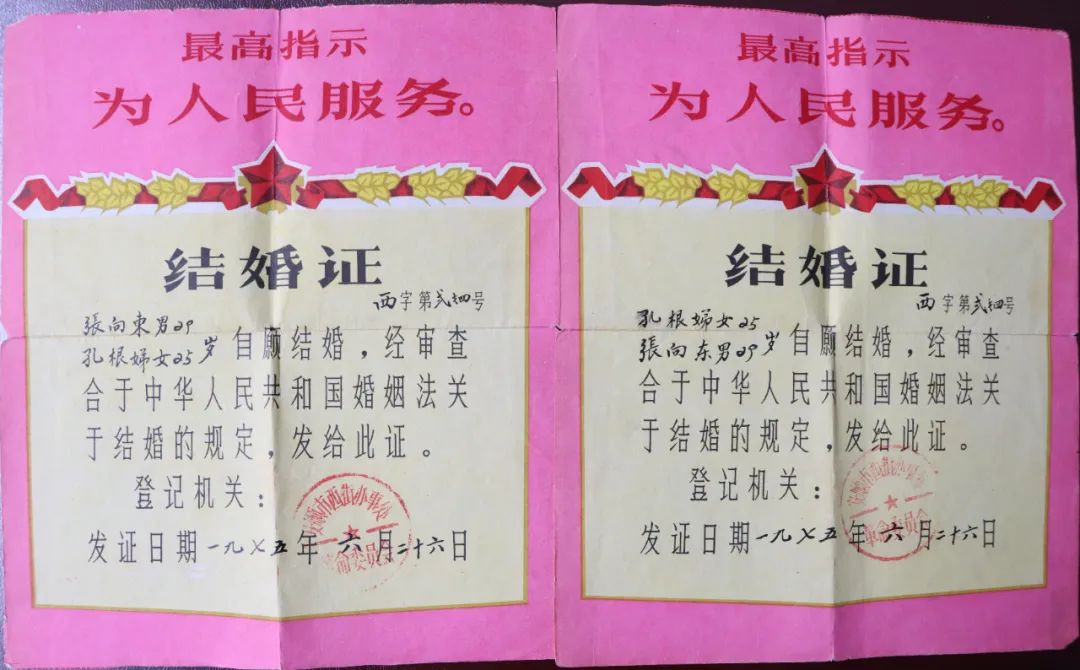 最高指示
为人民服务。
结婚证
西字第贰四号
張向東男29
孔根婦女25岁自愿结婚，经审查
合于中华人民共和国婚姻法关
于结婚的规定，发给此证。
登记机关：
市西街办事处
革命委员会
发证日期一九七五年六月二十六日
最高指示
为人民服务。
结婚证
西字第贰四号
孔根婦女25
張向东男29岁自愿结婚，经审查
合于中华人民共和国婚姻法关
于结婚的规定，发给此证。
登记机关：
市西街办事处
革命委员会
发证日期一九七五年六月二十六日